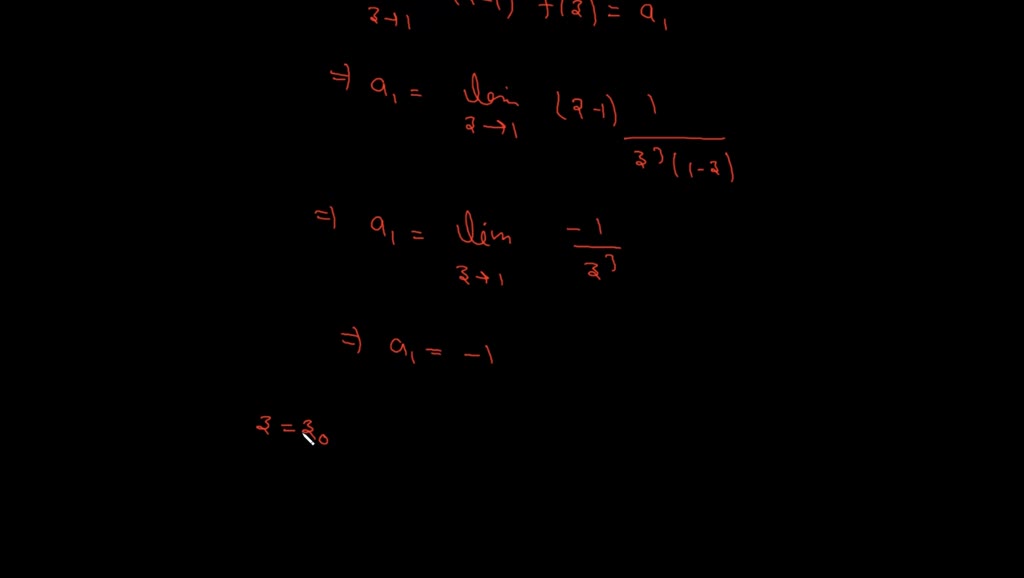 z→1 (z-1) f(z) = a₁
⇒ a₁ = lim z→1 (z-1) 1/(z³(1-z))
⇒ a₁ = lim z→1 -1/z³
⇒ a₁ = -1
z = z₀